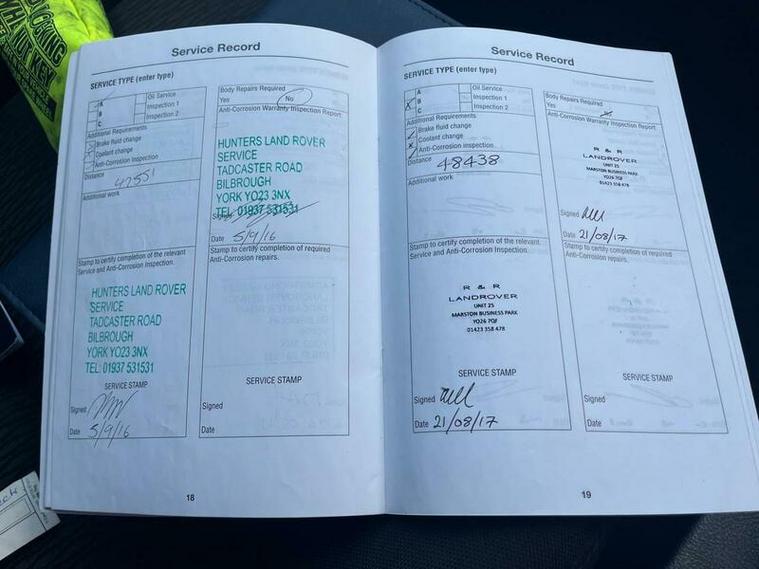 Service Record
SERVICE TYPE (enter type)
A
B
C
Oil Service
Inspection 1
Inspection 2
Additional Requirements
Brake fluid change
Coolant change
Anti-Corrosion Inspection
Distance
Additional work
Stamp to certify completion of the relevant
Service and Anti-Corrosion Inspection.
HUNTERS LAND ROVER
SERVICE
TADCASTER ROAD
BILBROUGH
YORK YO23 3NX
TEL: 01937 531531
SERVICE STAMP
Signed
Date 5/9/16
Body Repairs Required
Yes No
Anti-Corrosion Warranty Inspection Report
HUNTERS LAND ROVER
SERVICE
TADCASTER ROAD
BILBROUGH
YORK YO23 3NX
TEL: 01937 531531
Signed
Date 5/9/16
Stamp to certify completion of required
Anti-Corrosion repairs.
SERVICE STAMP
Signed
Date
18
Service Record
SERVICE TYPE (enter type)
A
B
C
Oil Service
Inspection 1
Inspection 2
Additional Requirements
Brake fluid change
Coolant change
Anti-Corrosion inspection
Distance 48438
Additional work
Stamp to certify completion of the relevant
Service and Anti-Corrosion Inspection.
R & R
LANDROVER
UNIT 25
MARSTON BUSINESS PARK
YO26 7QF
01423 358 478
SERVICE STAMP
Signed
Date 21/08/17
Body Repairs Required
Yes
Anti-Corrosion Warranty Inspection Report
R & R
LANDROVER
UNIT 25
MARSTON BUSINESS PARK
YO26 7QF
01423 358 478
Signed
Date 21/08/17
Stamp to certify completion of required
Anti-Corrosion repairs.
SERVICE STAMP
Signed
Date
19